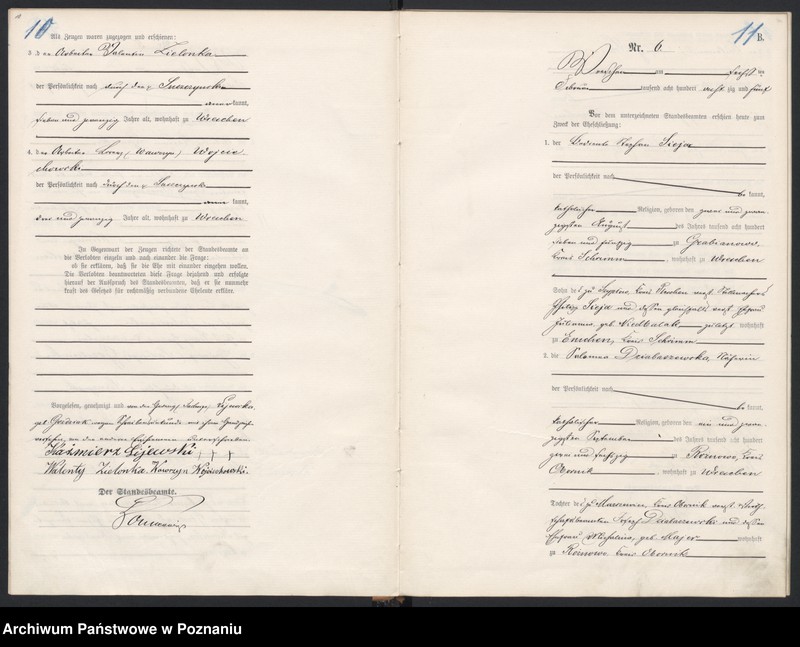 10
Als Zeugen waren zugezogen und erschienen:
3. der Arbeiter Valentin Zielonka
der Persönlichkeit nach durch den
kannt,
sieben und zwanzig Jahre alt, wohnhaft zu Wreschen
4. der Arbeiter Lorenz (Wawrzyn) Wojcie-
chowski
der Persönlichkeit nach durch den
kannt,
drei und zwanzig Jahre alt, wohnhaft zu Wreschen
In Gegenwart der Zeugen richtete der Standesbeamte an
die Verlobten einzeln und nach einander die Frage:
ob sie erklären, daß sie die Ehe mit einander eingehen wollen.
Die Verlobten beantworteten diese Frage bejahend und erfolgte
hierauf der Ausspruch des Standesbeamten, daß er sie nunmehr
kraft des Gesetzes für rechtmäßig verbundene Eheleute erkläre.
Vorgelesen, genehmigt und
Kaźmierz Lijewski, †††
Walenty Zielonka Wawrzyn Wojciechowski.
Der Standesbeamte.
11
B.
Nr. 6
Wreschen am sechsten
Februar tausend acht hundert achtzig und fünf
Vor dem unterzeichneten Standesbeamten erschienen heute zum
Zweck der Eheschließung:
1. der Stephan Sieja
der Persönlichkeit nach
be kannt,
katholischer Religion, geboren den zwei und zwan-
zigsten August des Jahres tausend acht hundert
sieben und fünfzig zu Grabianowo
Kreis Schrimm, wohnhaft zu Wreschen
Sohn des zu Kreis Pleschen
Philipp Sieja und dessen
Julianna geb. Niedbalak zuletzt wohnhaft
zu Emchen, Kreis Schrimm
2. die Salomea Dzialaszewska, Näherin
der Persönlichkeit nach
be kannt,
katholischer Religion, geboren den ein und zwan-
zigsten September des Jahres tausend acht hundert
zwei und fünfzig zu Kreis
Obornik, wohnhaft zu Wreschen
Tochter des zu Kreis Obornik
und dessen
Ehefrau Michalina, geb. Majer wohnhaft
zu Kreis Obornik
Archiwum Państwowe w Poznaniu